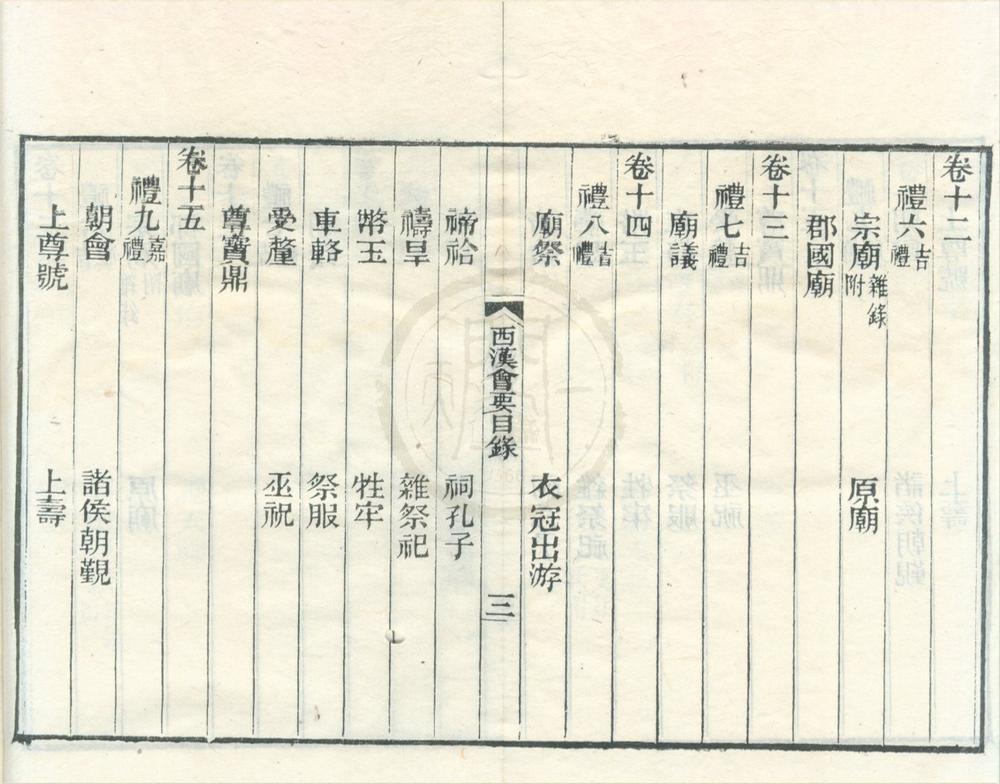 卷十二
禮六吉禮
宗廟雜錄附 原廟
郡國廟
卷十三
禮七吉禮
廟議
卷十四
禮八吉禮
廟祭 衣冠出游
西漢會要目錄 三
禘祫 祠孔子
禱旱 雜祭祀
幣玉 牲牢
車輅 祭服
受釐 巫祝
尊寶鼎
卷十五
禮九嘉禮
朝會 諸侯朝覲
上尊號 上壽